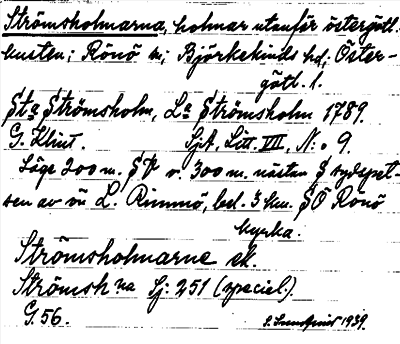 Strömsholmarna, holmar utanför östergötl.
kusten; Rönö sn; Björkekinds hd; Öster-
götl. l.
Sta Strömsholm, La Strömsholm 1789.
G. Klint. Sjk, Litt. VII, N:o 9.
Läge 200 m. SV o. 300 m. nästan S sydspet-
sen av ön L. Rimmö, bel. 3 km. SÖ Rönö
kyrka.
Strömsholmarne ek.
Strömsh na Sj: 251 (special).
G. 56. 1939.